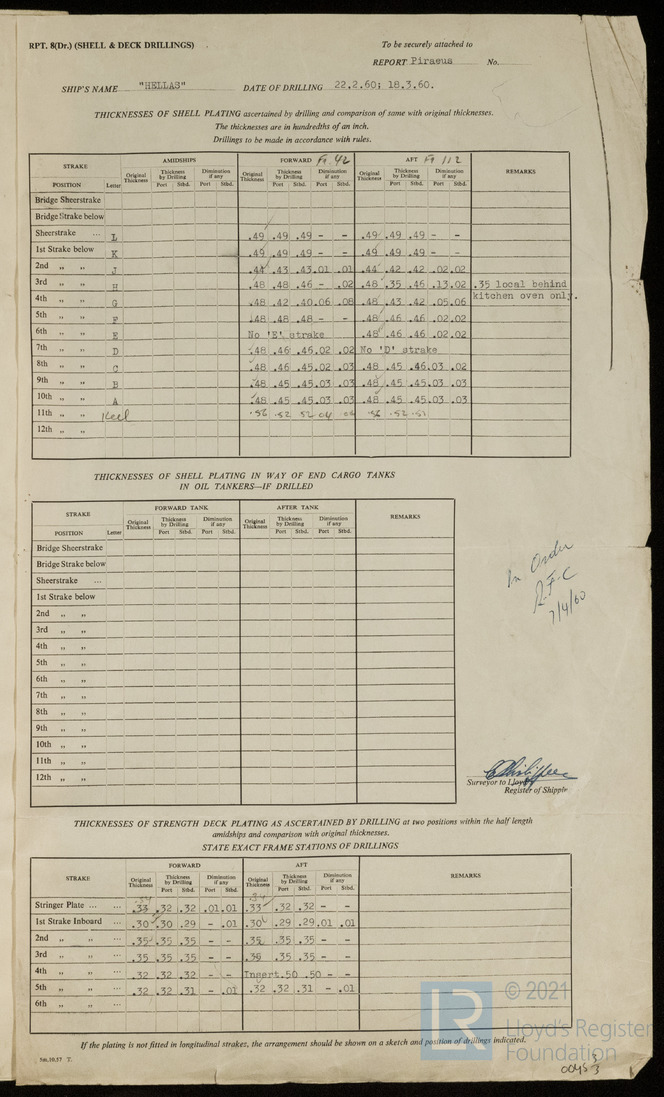 RPT. 8(Dr.) (SHELL & DECK DRILLINGS)
To be securely attached to
REPORT Piraeus No.
SHIP'S NAME "HELLAS" DATE OF DRILLING 22.2.60; 18.3.60.
THICKNESSES OF SHELL PLATING ascertained by drilling and comparison of same with original thicknesses.
The thicknesses are in hundredths of an inch.
Drillings to be made in accordance with rules.
STRAKE AMIDSHIPS FORWARD Fr 42 AFT Fr 112 REMARKS
POSITION Letter Original Thickness Thickness by Drilling Port Stbd. Diminution if any Port Stbd. Original Thickness Thickness by Drilling Port Stbd. Diminution if any Port Stbd. Original Thickness Thickness by Drilling Port Stbd. Diminution if any Port Stbd.
Bridge Sheerstrake
Bridge Strake below
Sheerstrake ... L .49 .49 .49 - - .49 .49 .49 - -
1st Strake below K .49 .49 .49 - - .49 .49 .49 - -
2nd „ „ J .44 .43 .43 .01 .01 .44 .42 .42 .02 .02
3rd „ „ H .48 .48 .46 - .02 .48 .35 .46 .13 .02 .35 local behind
4th „ „ G .48 .42 .40 .06 .08 .48 .43 .42 .05 .06 kitchen oven only.
5th „ „ F .48 .48 .48 - - .48 .46 .46 .02 .02
6th „ „ E No 'E' strake .48 .46 .46 .02 .02
7th „ „ D .48 .46 .46 .02 .02 No 'D' strake
8th „ „ C .48 .46 .45 .02 .03 .48 .45 .46 .03 .02
9th „ „ B .48 .45 .45 .03 .03 .48 .45 .45 .03 .03
10th „ „ A .48 .45 .45 .03 .03 .48 .45 .45 .03 .03
11th „ „ Keel .56 .52 52 04 .56 .52
12th „ „
THICKNESSES OF SHELL PLATING IN WAY OF END CARGO TANKS
IN OIL TANKERS—IF DRILLED
STRAKE FORWARD TANK AFTER TANK REMARKS
POSITION Letter Original Thickness Thickness by Drilling Port Stbd. Diminution if any Port Stbd. Original Thickness Thickness by Drilling Port Stbd. Diminution if any Port Stbd.
Bridge Sheerstrake
Bridge Strake below
Sheerstrake ...
1st Strake below
2nd „ „
3rd „ „
4th „ „
5th „ „
6th „ „
7th „ „
8th „ „
9th „ „
10th „ „
11th „ „
12th „ „
In Order
R.F.C
7/4/60
Surveyor to Lloyd's
Register of Shippin
THICKNESSES OF STRENGTH DECK PLATING AS ASCERTAINED BY DRILLING at two positions within the half length
amidships and comparison with original thicknesses.
STATE EXACT FRAME STATIONS OF DRILLINGS
STRAKE FORWARD AFT REMARKS
Original Thickness Thickness by Drilling Port Stbd. Diminution if any Port Stbd. Original Thickness Thickness by Drilling Port Stbd. Diminution if any Port Stbd.
.34 .34
Stringer Plate ... ... .33 .32 .32 .01 .01 .33 .32 .32 - -
1st Strake Inboard ... .30 .30 .29 - .01 .30 .29 .29 .01 .01
2nd „ „ ... .35 .35 .35 - - .35 .35 .35 - -
3rd „ „ ... .35 .35 .35 - - .35 .35 .35 - -
4th „ „ ... .32 .32 .32 - - Insert .50 .50 - -
5th „ „ ... .32 .32 .31 - .01 .32 .32 .31 - .01
6th „ „ ...
If the plating is not fitted in longitudinal strakes, the arrangement should be shown on a sketch and position of drillings indicated.
5m.10.57 T.
LR © 2021
Lloyd's Register
Foundation